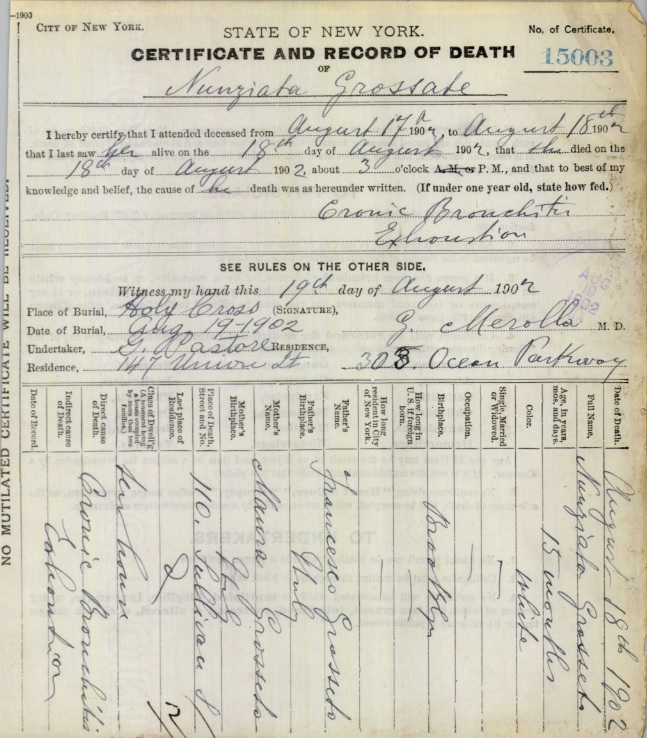 —1900
CITY OF NEW YORK.
STATE OF NEW YORK.
No. of Certificate.
CERTIFICATE AND RECORD OF DEATH
15003
OF
Nunziata Grossate
I hereby certify that I attended deceased from August 17th 1902, to August 18th 1902
that I last saw her alive on the 18th day of August 1902, that she died on the
18th day of August 1902, about 3 o'clock A. M. or P. M., and that to best of my
knowledge and belief, the cause of he death was as hereunder written. (If under one year old, state how fed.)
Cronic Bronchitis
Exhoustion
SEE RULES ON THE OTHER SIDE.
Witness my hand this 19th day of August 1902
Place of Burial, Holy Cross (SIGNATURE),
Date of Burial, Aug. 19-1902 G. Merolla M. D.
Undertaker, G. Pastore RESIDENCE,
Residence, 147 Union St. 305. Ocean Parkway
NO MUTILATED CERTIFICATE WILL BE RECEIVED.
Date of Death. August 18th 1902
Full Name, Nunziata Grosseto
Age, in years, mos. and days. 15 months
Color. White
Single, Married or Widowed.
Occupation.
Birthplace. Brooklyn
How long in U. S. if foreign born.
How long resident in City of New York.
Father's Name. Francesco Grosseto
Father's Birthplace.
Mother's Name. Grosseto
Mother's Birthplace.
Place of Death, Street and No. 110. Sullivan St
Last place of Residence.
Class of Dwell'g (A tenement being a house occupied by more than two families.) house
Direct cause of Death. Cronic Bronchitis
Indirect cause of Death.
Date of Record.